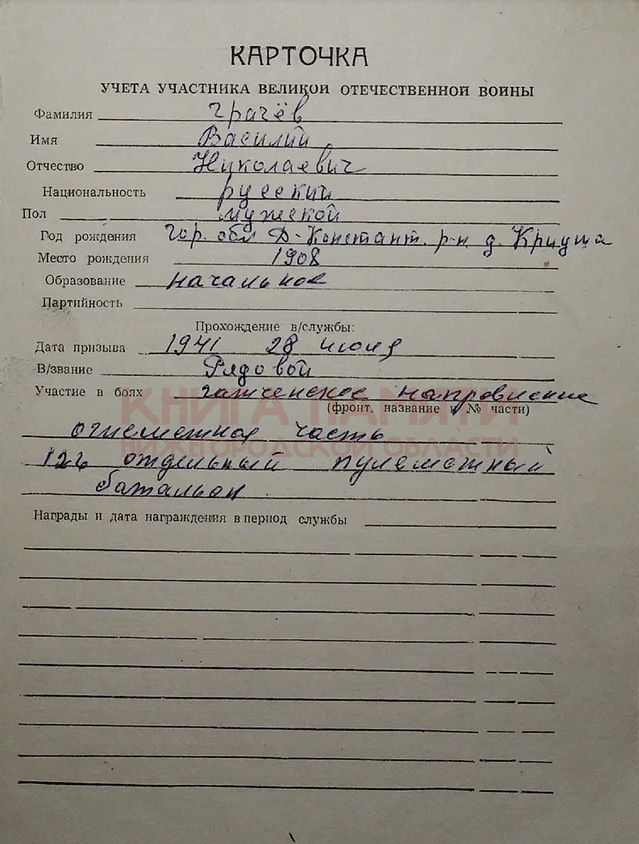 КАРТОЧКА
УЧЕТА УЧАСТНИКА ВЕЛИКОЙ ОТЕЧЕСТВЕННОЙ ВОЙНЫ
Фамилия Грачёв
Имя Василий
Отчество Николаевич
Национальность русский
Пол мужской
Год рождения Гор. обл Д-Констант. р-н д. Криуша
Место рождения 1908
Образование начальное
Партийность
Прохождение в/службы:
Дата призыва 1941 28 июля
В/звание Рядовой
Участие в боях направление
(фронт, название и № части)
КНИГА ПАМЯТИ
огнеметная часть
НИЖЕГОРОДСКОЙ ОБЛАСТИ
126 отдельный пулеметный
батальон.
Награды и дата награждения в период службы